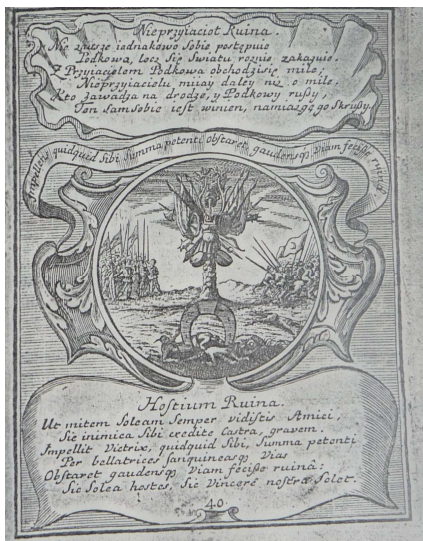 Nieprzyiaciot Ruina.
Nie zawsze iednakowo Sobie postępuie
Podkowa, lecz Się Swiatu roznie zakazuie.
Z Przyiacielem Podkowa obchodzi się mile,
Nieprzyiacielu miiay daley niz o mile,
Kto zawadza na drodze, y Podkowy ruszy,
Ten Sam Sobie iest winien, na miazgę go Skruszy.
Impellens quidquid Sibi Summa petenti obstaret, gaudensq; viam fecisse ruina
Hostium Ruina.
Ut mitem Soleam Semper vidistis Amici,
Sic inimica Sibi credite Castra, gravem.
Impellit Victrix, quidquid Sibi, Summa petenti
Per bellatrices Sanguineasq; Vias
Obstaret gaudensq; Viam fecisse ruina:
Sic Solea hostes, Sic Vincere nostra Solet.
40.